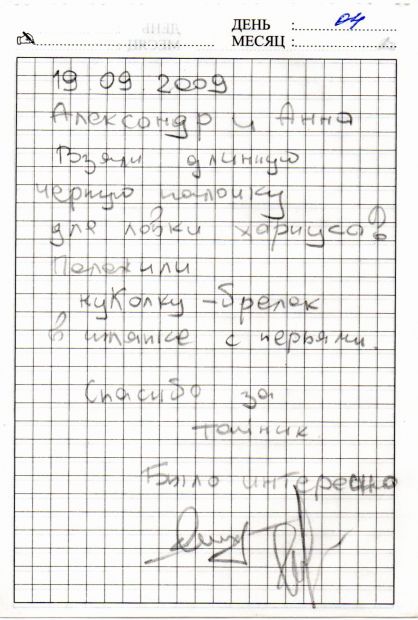 ДЕНЬ : 04
МЕСЯЦ :
19 09 2009
Александр и Анна
Взяли длинную
черную палочку
для ловки хариусов
Положили
куКолку - брелок
в шляпке с перьями.
Спасибо за
тайник
Было интересно